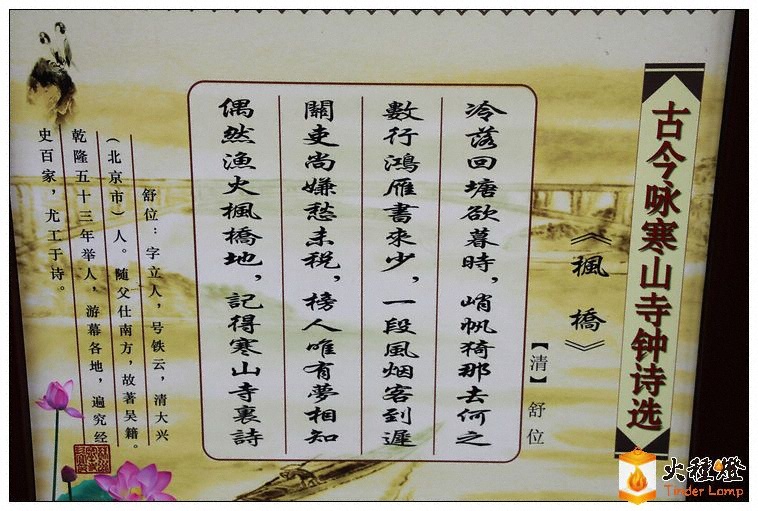 古今咏寒山寺钟诗选
《楓橋》
【清】舒位
冷落回塘欲暮時，峭帆猗那去何之
數行鴻雁書來少，一段風烟客到遲
關吏尚嫌愁未税，榜人唯有夢相知
偶然漁火楓橋地，記得寒山寺裏詩
舒位：字立人，号铁云，清大兴
（北京市）人。随父仕南方，故著吴籍。
乾隆五十三年举人，游幕各地，遍究经
史百家，尤工于诗。
火種燈
Tinder Lamp